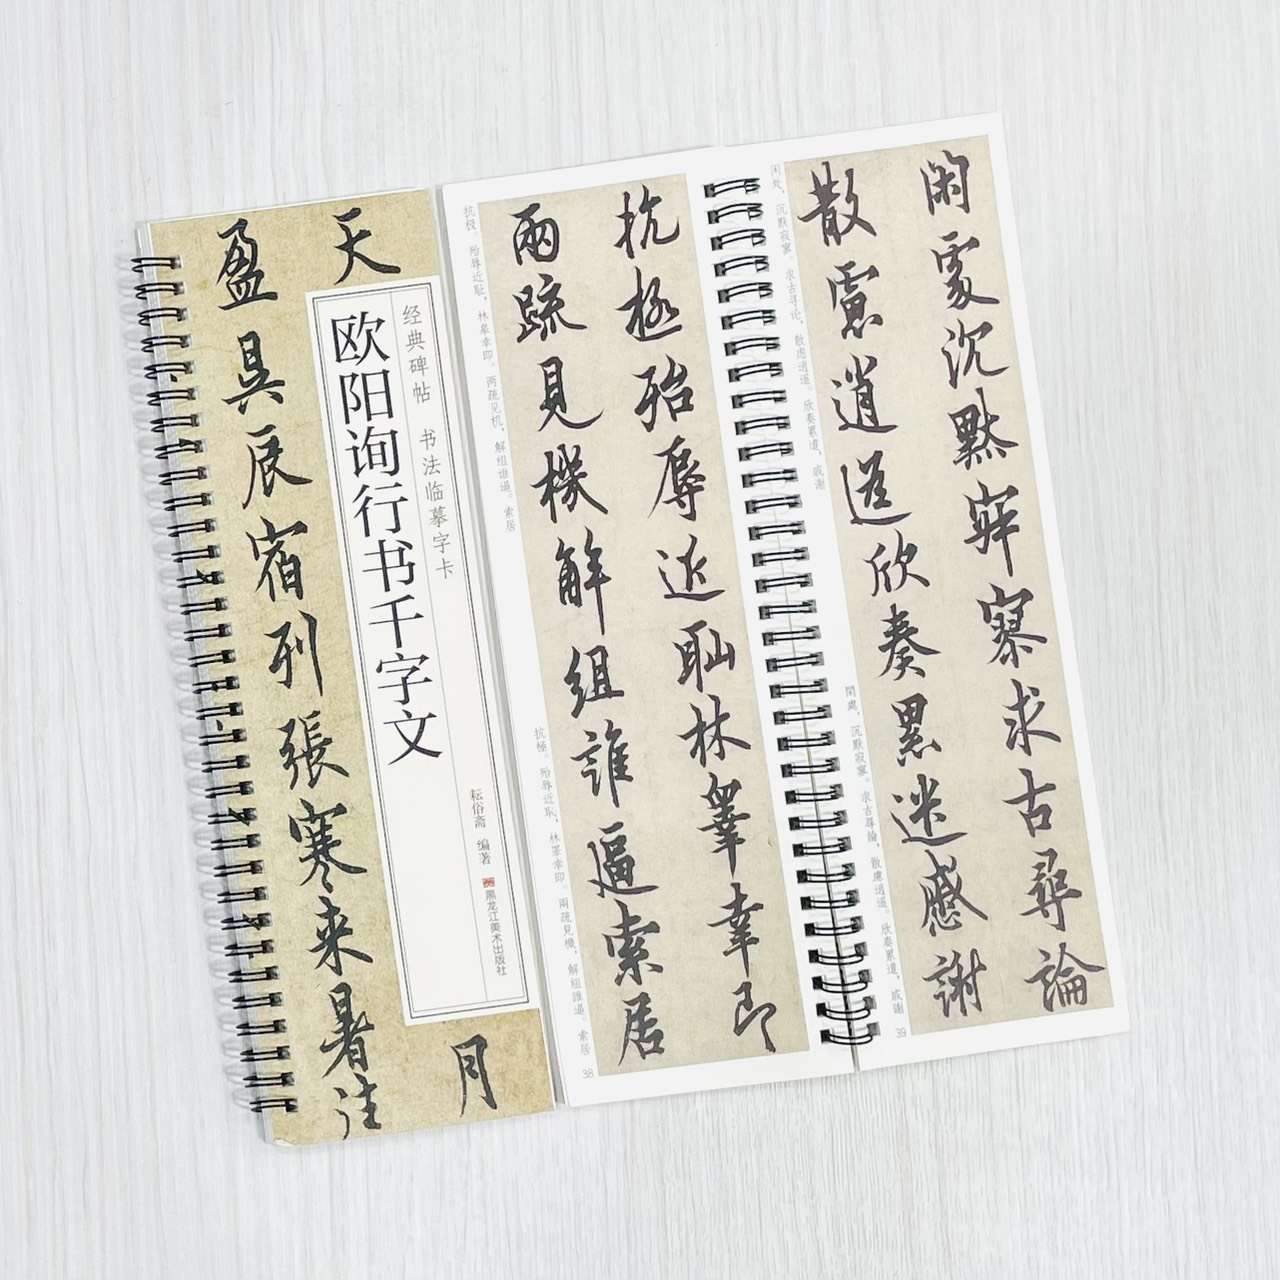 天
月
盈昃辰宿列張寒来暑往
经典碑帖 书法临摹字卡
欧阳询行书千字文
耘俗斋 编著
黑龙江美术出版社
抗極殆辱近耻林睾幸即
兩疏見機解組誰逼索居
抗极。殆辱近耻，林皋幸即。两疏见机，解组谁逼。索居
抗極。殆辱近恥，林睾幸即。兩疏見機，解組誰逼。索居
38
閑處沉默寂寥求古尋論
散慮逍遥欣奏累遣慼謝
闲处，沉默寂寥。求古寻论，散虑逍遥。欣奏累遣，戚谢
閑處，沉默寂寥。求古尋論，散慮逍遥。欣奏累遣，戚謝
39